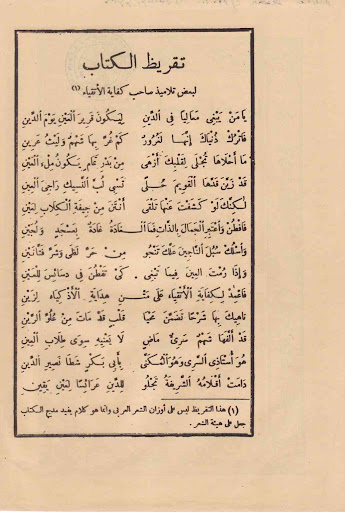 تقريظ الكتاب
لبعض تلاميذ صاحب كفاية الأتقياء (١)
يَا مَنْ يَبْغِي مَعَالِيًا فِي الدِّينِ لِيَكُونَ قَرِيرَ الْعَيْنِ يَوْمَ الدِّينِ
فَاتْرُكْ دُنْيَاكَ إِنَّهَا لَغَرُورٌ كَمْ غُرَّ بِهَا شَهْمٌ وَلَيْثُ عَرِينِ
مَا أَحْلَاهَا تُجْلَى لِقَلْبِكَ أَزْهَى مِنْ بَدْرِ تَمَامٍ يَكُونُ مِلْءَ الْعَيْنِ
قَدْ زَيَّنَ قَدَّهَا الْقَوِيمَ حُلِيٌّ تَسْبِي لُبَّ النَّسِيكِ رَاجِي الْعِينِ
لَكِنَّكَ لَوْ كَشَفْتَ عَنْهَا تَلْقَى أَنْتَنَ مِنْ جِيفَةِ الْكِلَابِ لِعَيْنِ
فَافْطَنْ وَاعْتَبِرِ الْجَمَالَ بِالذَّاتِ فَمَا الْغَادَةُ غَادَةٌ بِعَسْجَدٍ وَلُجَيْنِ
وَاسْلُكْ سُبُلَ النَّاجِينَ عَلَّكَ تَنْجُو مِنْ حَرِّ لَظَى وَشَرِّ فَتَّانَيْنِ
وَإِذَا رُمْتَ الْعِينَ فِيمَا تَبْغِي كَيْ تَفْطَنَ فِي دَسَائِسَ لِلْعَيْنِ
فَاعْمِدْ لِكِفَايَةِ الْأَتْقِيَاءِ عَلَى مَتْنِ هِدَايَةِ الْأَذْكِيَاءِ لِزَيْنِ
نَاهِيكَ بِهَا شَرْحًا تَضَمَّنَ نَحْيَا قَلْبٍ قَدْ مَاتَ مِنْ عُلُوِّ الرَّيْنِ
قَدْ أَلَّفَهَا شَهْمٌ سَرِيٌّ مَاضٍ لَا يَعْنِيهِ سِوَى طِلَابِ الْعِينِ
هُوَ أُسْتَاذِي السَّرِيُّ وَهُوَ الْمُكَنَّى بِأَبِي بَكْرٍ شَطَا نَصِيرِ الدِّينِ
دَامَتْ أَقْلَامُهُ الشَّرِيفَةُ تَجْلُو لِلدِّينِ عَرَائِسًا لِعَيْنِ يَقِينِ
(١) هذا التقريظ ليس على أوزان الشعر العربى وانما هو كلام يفيد مدح الكتاب
جعل على هيئة الشعر .